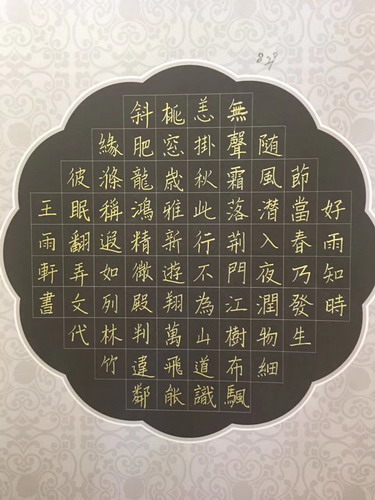 829
好雨知時
節當春乃發生
随風潜入夜潤物細
無聲霜落荆門江樹布颿
恙掛秋此行不為山道識
桃窓歳雅新遊翔萬飛能
斜肥龍鴻精微殿判違鄰
緣滌稱遐如列林竹
彼眠翻弄文代
王雨軒書